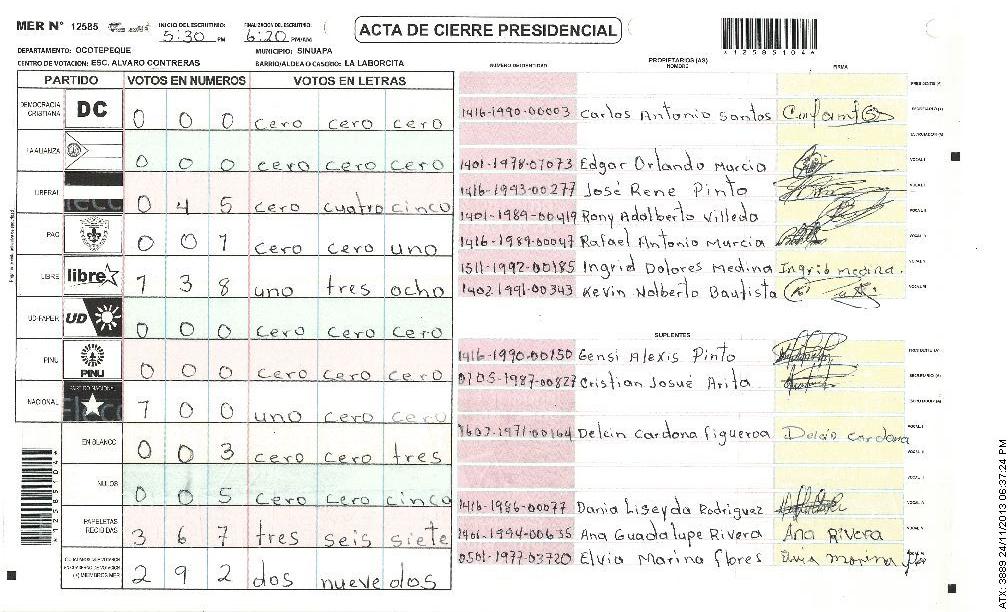 MER N° 12585 INICIO DEL ESCRUTINIO: 5:30 PM FINALIZACION DEL ESCRUTINIO: 6:20 PM/AM ACTA DE CIERRE PRESIDENCIAL
*1258510 4*
DEPARTAMENTO: OCOTEPEQUE MUNICIPIO: SINUAPA
CENTRO DE VOTACION: ESC. ALVARO CONTRERAS BARRIO/ALDEA O CASERIO: LA LABORCITA
PARTIDO VOTOS EN NUMEROS VOTOS EN LETRAS
DEMOCRACIA CRISTIANA DC 0 0 0 cero cero cero
LA ALIANZA 0 0 0 cero cero cero
LIBERAL 0 4 5 cero cuatro cinco
PAC 0 0 1 cero cero uno
LIBRE libre 1 3 8 uno tres ocho
UD-FAPER UD 0 0 0 cero cero cero
PINU PINU 0 0 0 cero cero cero
NACIONAL PARTIDO NACIONAL 1 0 0 uno cero cero
EN BLANCO 0 0 3 cero cero tres
NULOS 0 0 5 cero cero cinco
PAPELETAS RECIBIDAS 3 6 7 tres seis siete
2 9 2 dos nueve dos
NUMERO DE IDENTIDAD PROPIETARIOS (AS) NOMBRE FIRMA
1416-1990-00003 Carlos Antonio Santos
1401-1978-01073 Edgar Orlando Murcia
1416-1993-00277 José Rene Pinto
1401-1989-00419 Rony Adalberto Villeda
1416-1989-00047 Rafael Antonio Murcia
1511-1992-00185 Ingrid Dolores Medina Ingrid medina.
1402-1991-00343 Kevin Nolberto Bautista
SUPLENTES
1416-1990-00150 Gensi Alexis Pinto
0105-1987-00827 Cristian Josué Arita
1607-1971-00164 Delcin Cardona figueroa Delcin cardona
1416-1986-00077 Dania Liseyda Rodriguez
1401-1994-00635 Ana Guadalupe Rivera Ana Rivera
0501-1977-03720 Elvia Marina flores
ATX: 3889 24/11/2013 06:37:24 PM